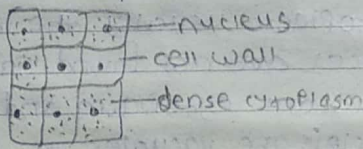 nucleus
cell wall
dense cytoplasm